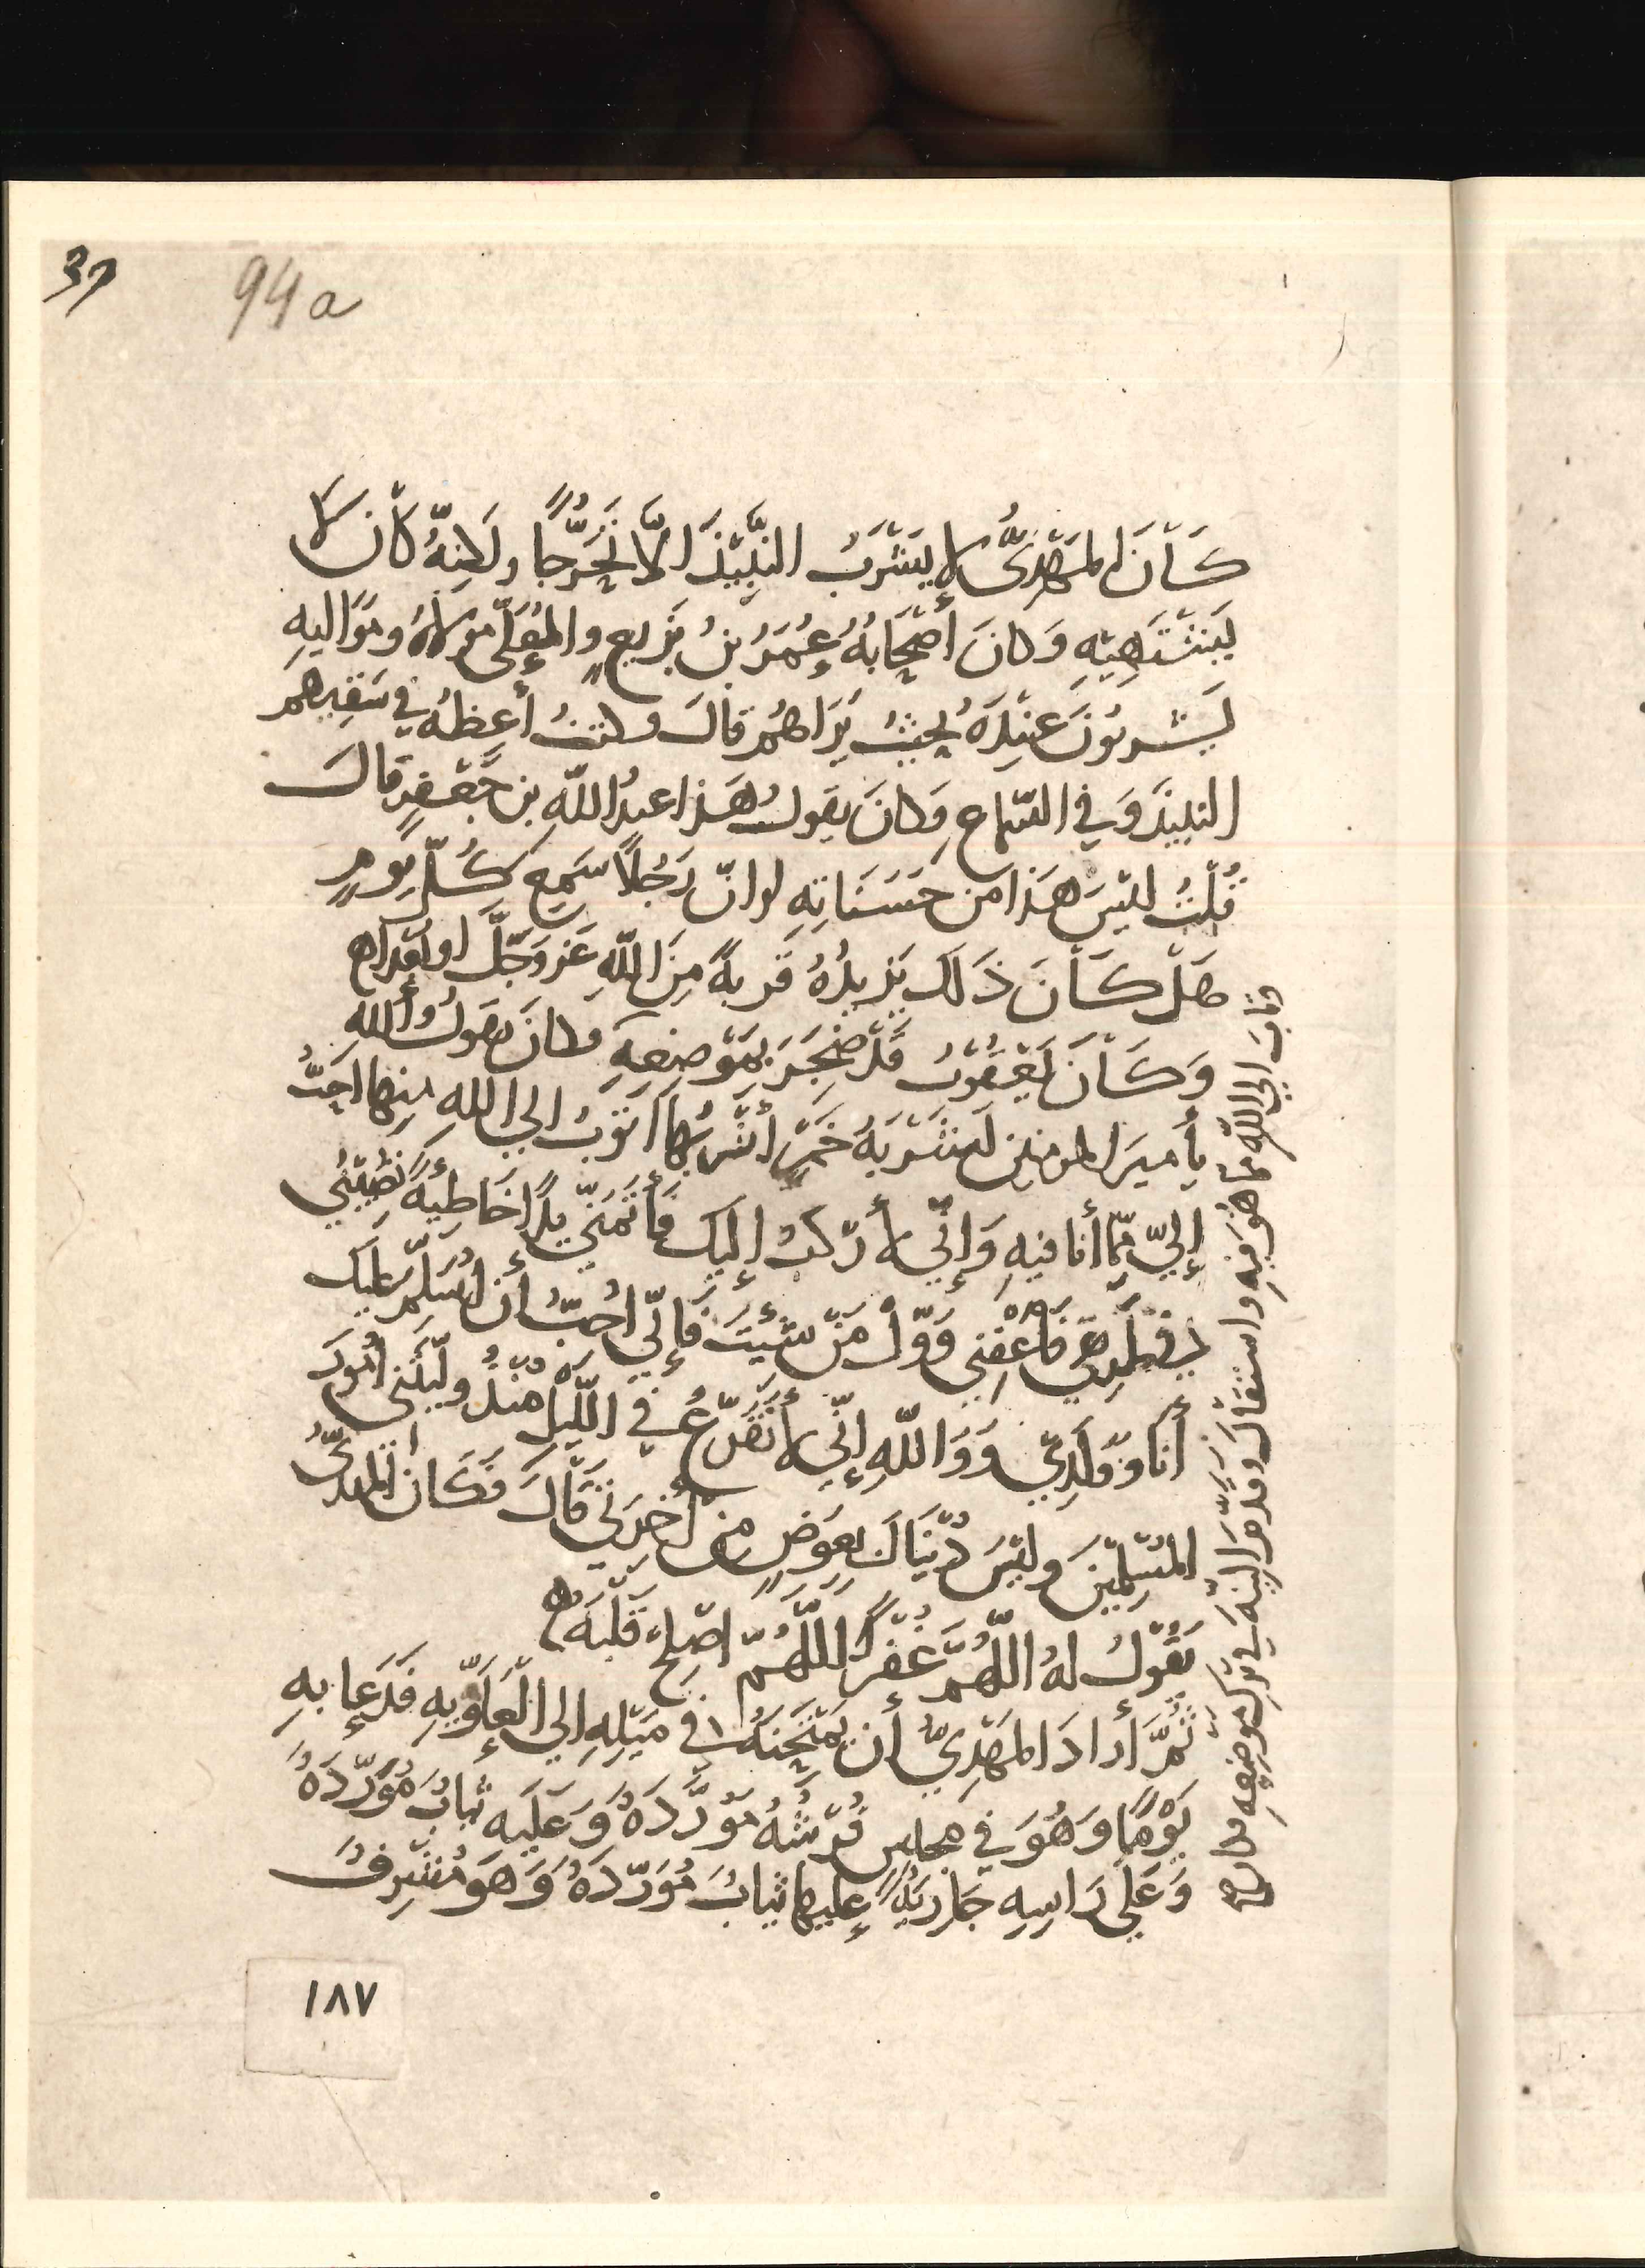 37
94a
كَانَ المَهْدِىُّ لا يَشْرَبُ النَّبِيْذَ الّا تَحَرُّجًا ولَكِنّهُ كَانَ لا
يَشْتَهِيْهِ وَكانَ أصْحَابُهُ عُمَرُ بنُ بَزِيعٍ والمُعَلَّى مَوْلاهُ ومَوَاليهِ
يَشْربُونَ عِنْدَهُ بحيْثُ يَرَاهُمْ قالَ وكنتُ أعِظهُ في سَقيِهم
النبيذَ وَفي السّماعِ وَكانَ يقولُ هَذا عبدُ اللّهِ بن جَعْفَرٍ قالَ
قُلْتُ ليْسَ هَذا مِن حَسَنَاتِهِ لوانّ رَجُلًا سَمِعَ كُلّ يَومٍ
هَلْ كَانَ ذَلك يَزيدُهُ قربةً مِنَ اللّهِ عَزّ وَجَلَّ او
وَكَانَ يَعْقُوْبُ قَدْ ضَجِرَ بمَوْضِعِهِ وكانَ يقولُ واللهِ
يا أميرَ المومنين لَشَرْبَهُ خَمْرٍ أشْرَبُها أتوبُ الي اللهِ مِنها احَبُّ
إليّ مِمّا أنا فيهِ وَإنّي لأرْكبُ إليك فأتَمَنّي يدًا خَاطِيةً تُصِيْبُني
في الطّريقِ فَأعْفِني وَوَلّ مَنْ شيْتَ فَإنّي احُبُّ أن اُسَلّمَ عليك
أنا وَوَلَدِي وَوَاللّهِ إنّي لأتَفَزّعُ في اللّيْلِ وليْتَني امُورَ
المُسْلِمِيْنَ وليْسَ دُنيَاكَ بِعِوَضٍ مِن آخِرَتي قَالَ فَكَانَ المهديُّ
يَقُوْلُ لهُ اللّهُمَّ غَفْرًا اللّهُمّ اصْلح قَلْبَهُ
ثُمَّ أرادَ المَهْدِيُّ أن يَمْتَحِنَهُ في مَيْلِهِ إلي العَلَوِيّهِ فَدَعا بهِ
يَوْمًا وَهُوَ في مجلس فُرْشُهُ مُوَرَّدَةٌ وَعَليْه ثيابٌ مُوَرّدَهٌ
وَعَلي رَاسِهِ جَارِيَةٌ عليها ثيابٌ مُوَرّدَهٌ وَهوَ مُشْرِفٌ
وتابَ الي اللّهِ مما هُوَ فيهِ واستقالَ وقدّمَ النيّهَ في تركِ موضعِهِ وكان
١٨٧